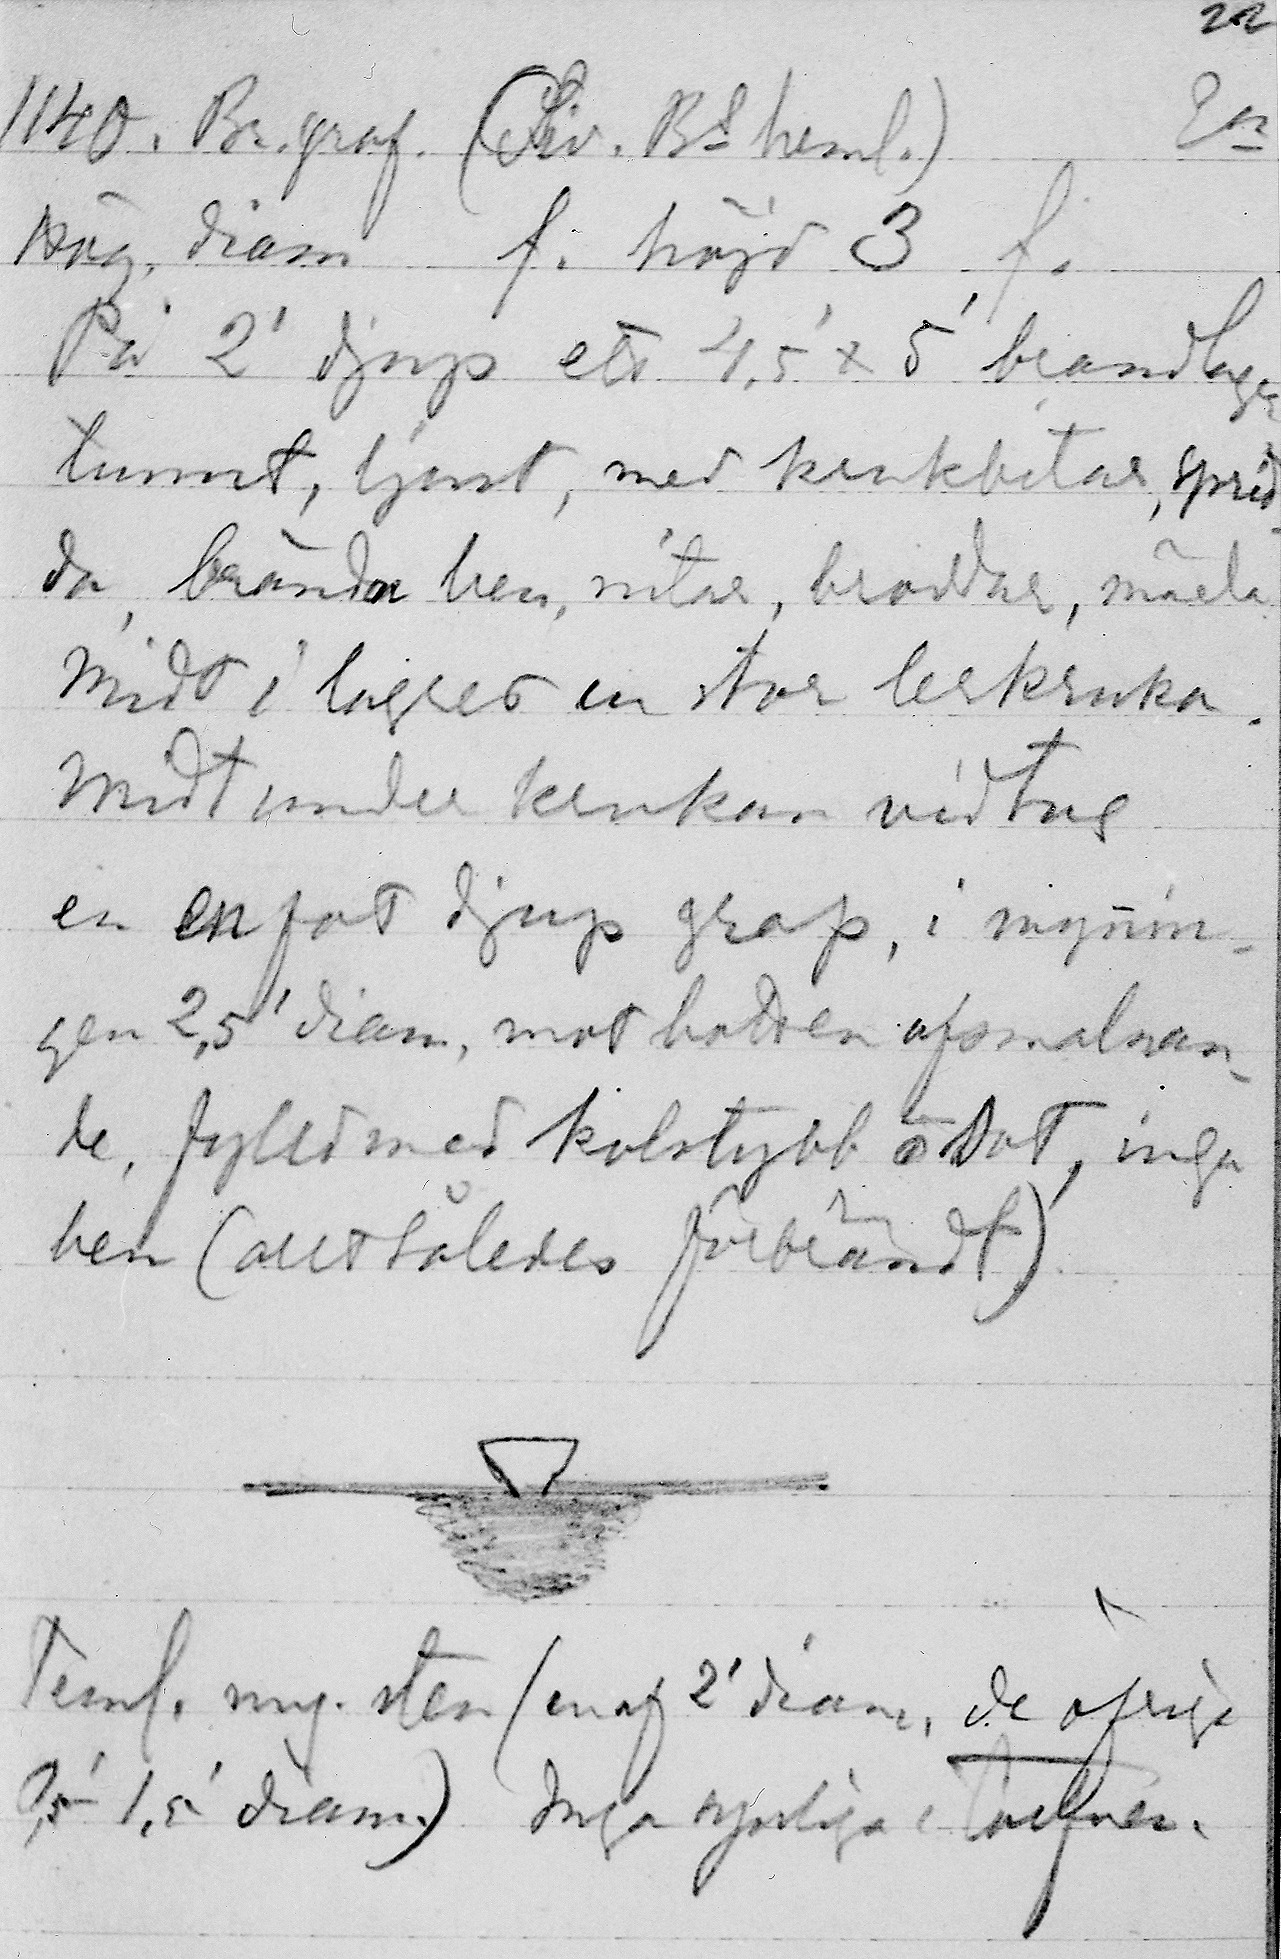 22
1140. Br. graf. (Div. Bd heml.) En
hög, diam f. höjd 3 f.
På 2' djup ett 4,5' x 5' brandlager
tunnt, ljust, med krukbitar, sprid-
da, brända ben, nitar, broddar, märla
Midt i lagret en stor lerkruka.
Midt under krukan vidtog
en en fot djup grop, i mynnin-
gen 2,5' diam, mot botten afsmalnan-
de, fylld med kolstybb o sot, inga
ben (allt således förbrändt)
Teml. myc. sten (en af 2' diam, de öfriga
0,5'-1,5' diam.) Inga synliga i torfven.